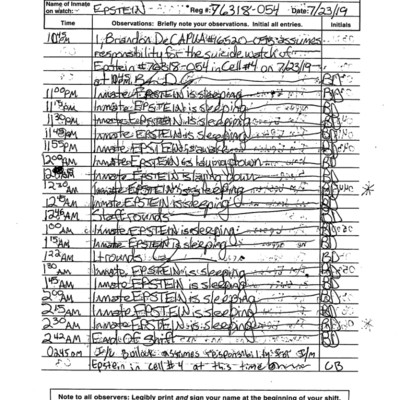 Name of Inmate on watch: EPSTEIN Reg #: 76318-054 Date: 7/23/19
Time Observations: Briefly note your observations. Initial all entries. Initials
1045 PM I, Brandon DeCAPUA #16520-078 assumes
responsibility for the suicide watch of
Epstein #76318-054 in Cell #4 on 7/23/19
at 1045 BD
11:00PM Inmate EPSTEIN is sleeping BD
11:15AM Inmate EPSTEIN is sleeping BD
11:30AM Inmate EPSTEIN is sleeping BD
11:45AM Inmate EPSTEIN is sleeping BD
11:55PM Inmate EPSTEIN is awake BD
12:00AM Inmate EPSTEIN is laying down BD
Inmate EPSTEIN is laying down BD
12:30AM Inmate EPSTEIN is sleeping BD *
12:45AM Inmate EPSTEIN is sleeping BD
12:46AM Staff rounds BD
1:00AM Inmate EPSTEIN is sleeping BD
1:15AM Inmate EPSTEIN is sleeping BD
1:22AM Lt rounds BD
1:30AM Inmate EPSTEIN is sleeping BD
1:45AM Inmate EPSTEIN is sleeping BD
2:00AM Inmate EPSTEIN is sleeping BD
2:15AM Inmate EPSTEIN is sleeping BD
2:30AM Inmate EPSTEIN is sleeping BD *
2:42AM End Of Shift BD
0245am I/C Bullock assumes responsibility for I/m
Epstein in cell #4 at this time CB
Note to all observers: Legibly print and sign your name at the beginning of your shift.